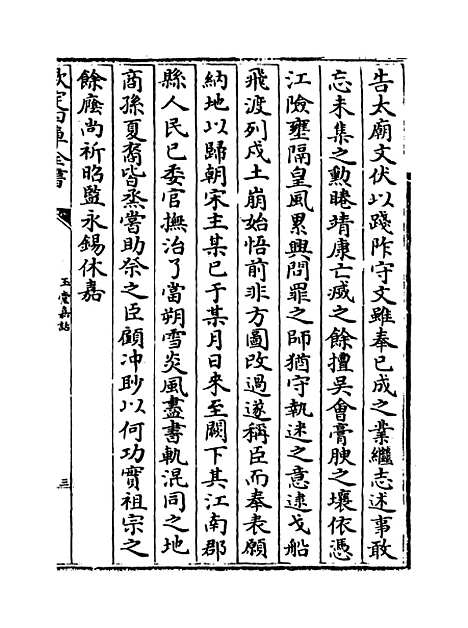 告太廟文伏以踐阼守文雖奉已成之業繼志述事敢
忘未集之勲睠靖康亡滅之餘擅吳會膏腴之壤依憑
江險壅隔皇風累興問罪之師猶守執迷之意逮戈船
飛渡列戍土崩始悟前非方圖改過遂稱臣而奉表願
納地以歸朝宋主某已于某月日來至闕下其江南郡
縣人民已委官撫治了當朔雪炎風盡書軌混同之地
商孫夏裔皆烝嘗助祭之臣顧冲眇以何功實祖宗之
餘廕尚祈昭監永錫休嘉
欽定四庫全書
玉堂嘉話
三